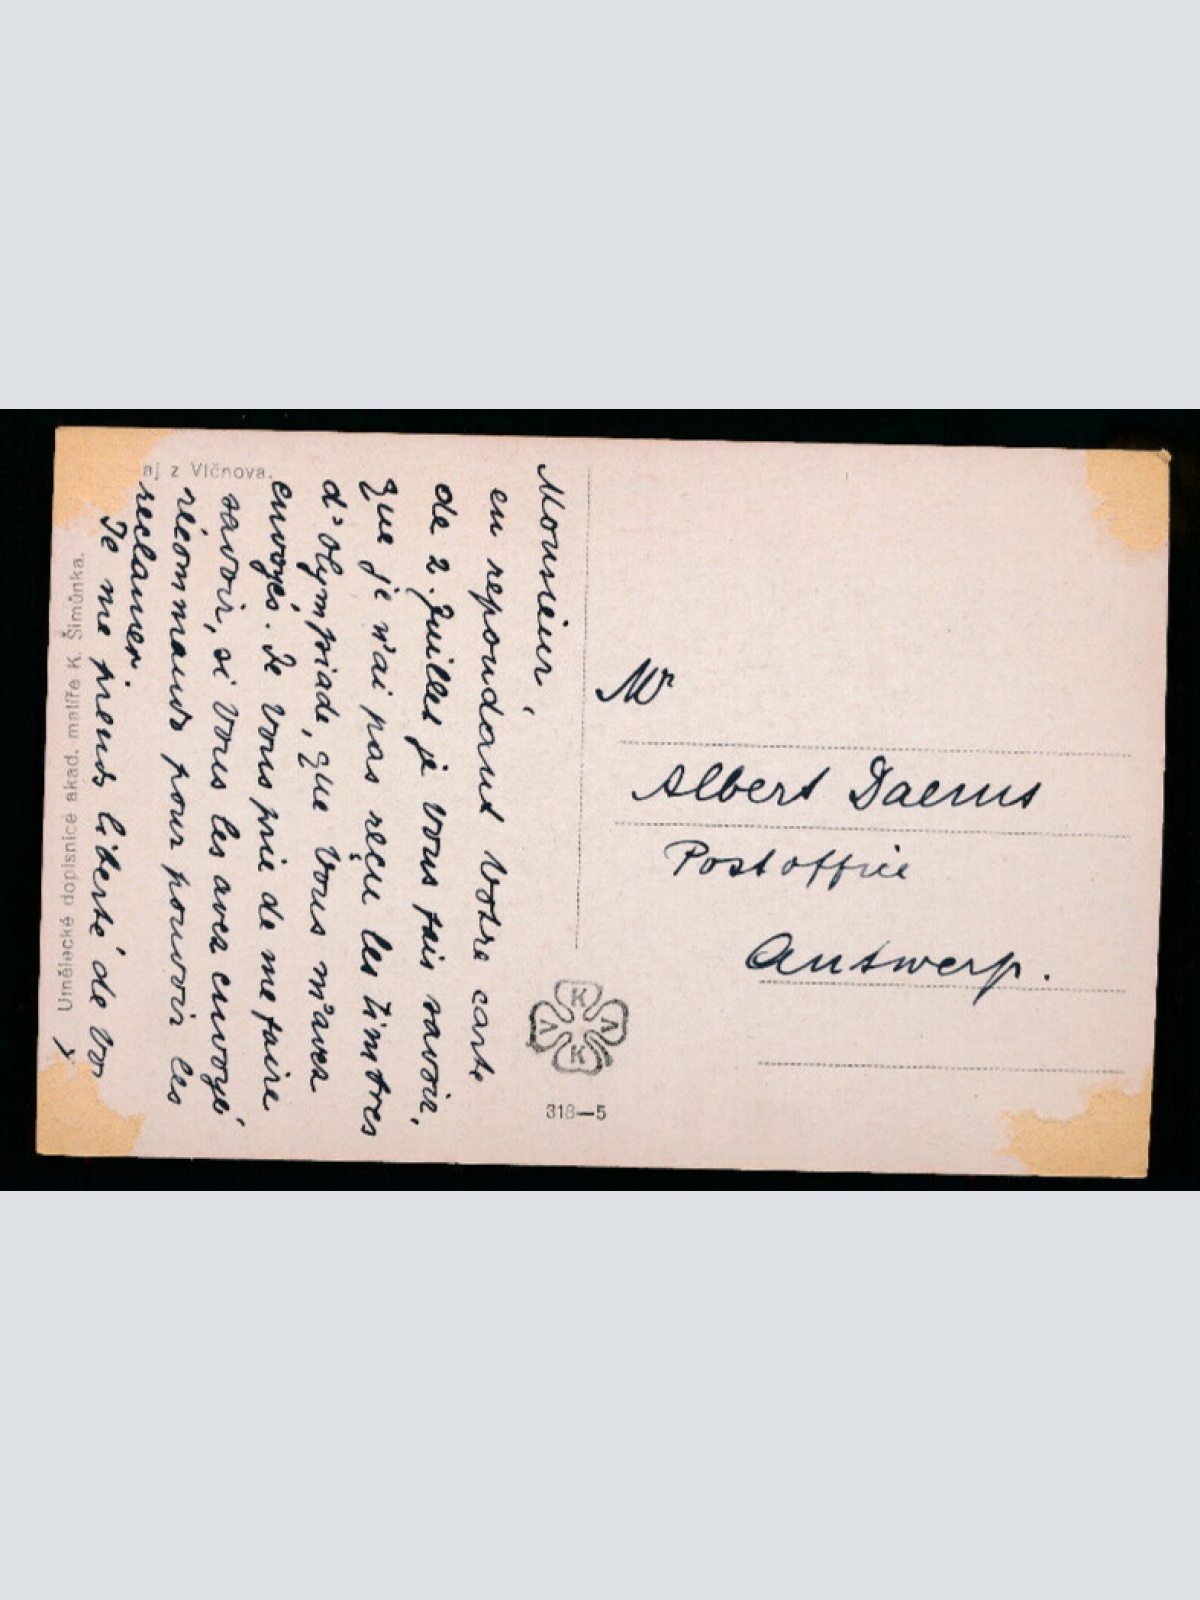 Monsieur,
en repondant Votre carte
de 2. Juillet je Vous fais savoir,
que je n'ai pas reçu les timbres
d'olympiade, que Vous m'avez
envoyés. Je Vous prie de me faire
savoir, si Vous les avez envoyé
récommands pour pouvoir les
reclamer.
Je me prends liberté de
aj z Vlčnova.
Umělecké dopisnice akad. malíře K. Šimůnka.
Mr
Albert Daems
Post office
Antwerp.
K
A
K
318—5